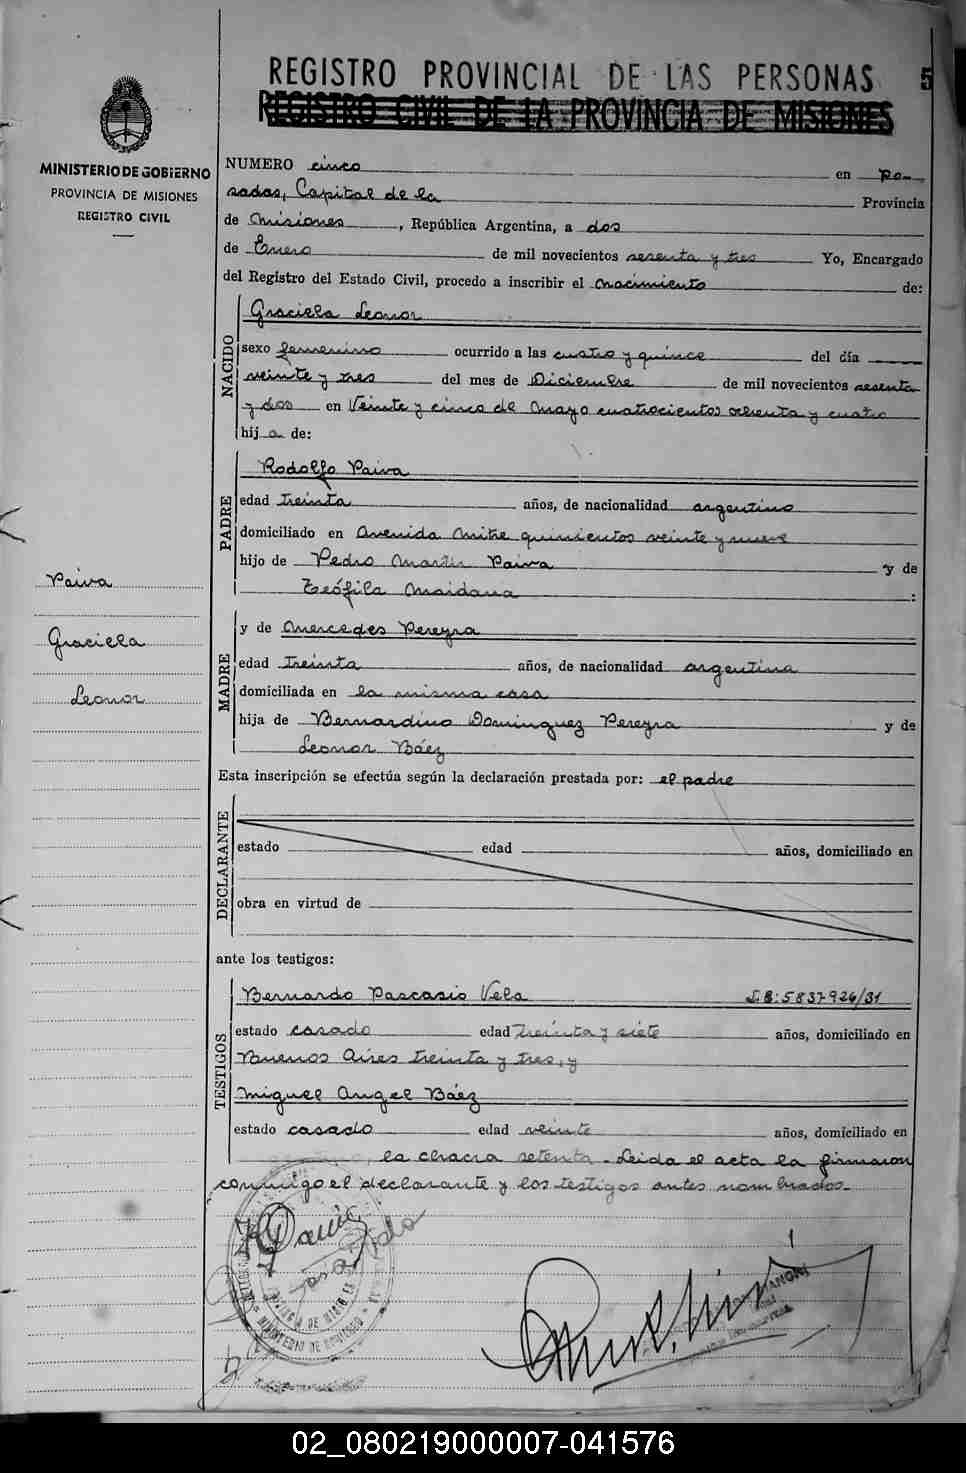 REGISTRO PROVINCIAL DE LAS PERSONAS 5
REGISTRO CIVIL DE LA PROVINCIA DE MISIONES
MINISTERIO DE GOBIERNO
PROVINCIA DE MISIONES
REGISTRO CIVIL
NUMERO cinco en Po-
sadas, Capital de la Provincia
de Misiones, República Argentina, a dos
de Enero de mil novecientos sesenta y tres Yo, Encargado
del Registro del Estado Civil, procedo a inscribir el Nacimiento de:
NACIDO
Graciela Leonor
sexo femenino ocurrido a las cuatro y quince del día
veinte y tres del mes de Diciembre de mil novecientos sesenta
y dos en Veinte y cinco de Mayo cuatrocientos ochenta y cuatro
hija de:
PADRE
Rodolfo Paiva
edad treinta años, de nacionalidad argentino
domiciliado en Avenida Mitre quinientos veinte y nueve
hijo de Pedro Martir Paiva y de
Teófila Maidana :
Paiva
Graciela
Leonor
MADRE
y de Mercedes Pereyra
edad treinta años, de nacionalidad argentina
domiciliada en la misma casa
hija de Bernardino Dominguez Pereyra y de
Leonor Báez
Esta inscripción se efectúa según la declaración prestada por: el padre
DECLARANTE
estado edad años, domiciliado en
obra en virtud de
ante los testigos:
TESTIGOS
Bernardo Pascasio Vela I.E: 5837926/31
estado casado edad treinta y siete años, domiciliado en
Buenos Aires treinta y tres, y
Miguel Angel Báez
estado casado edad veinte años, domiciliado en
la chacra setenta. Leida el acta la firmaron
conmigo el declarante y los testigos antes nombrados.
02_080219000007-041576